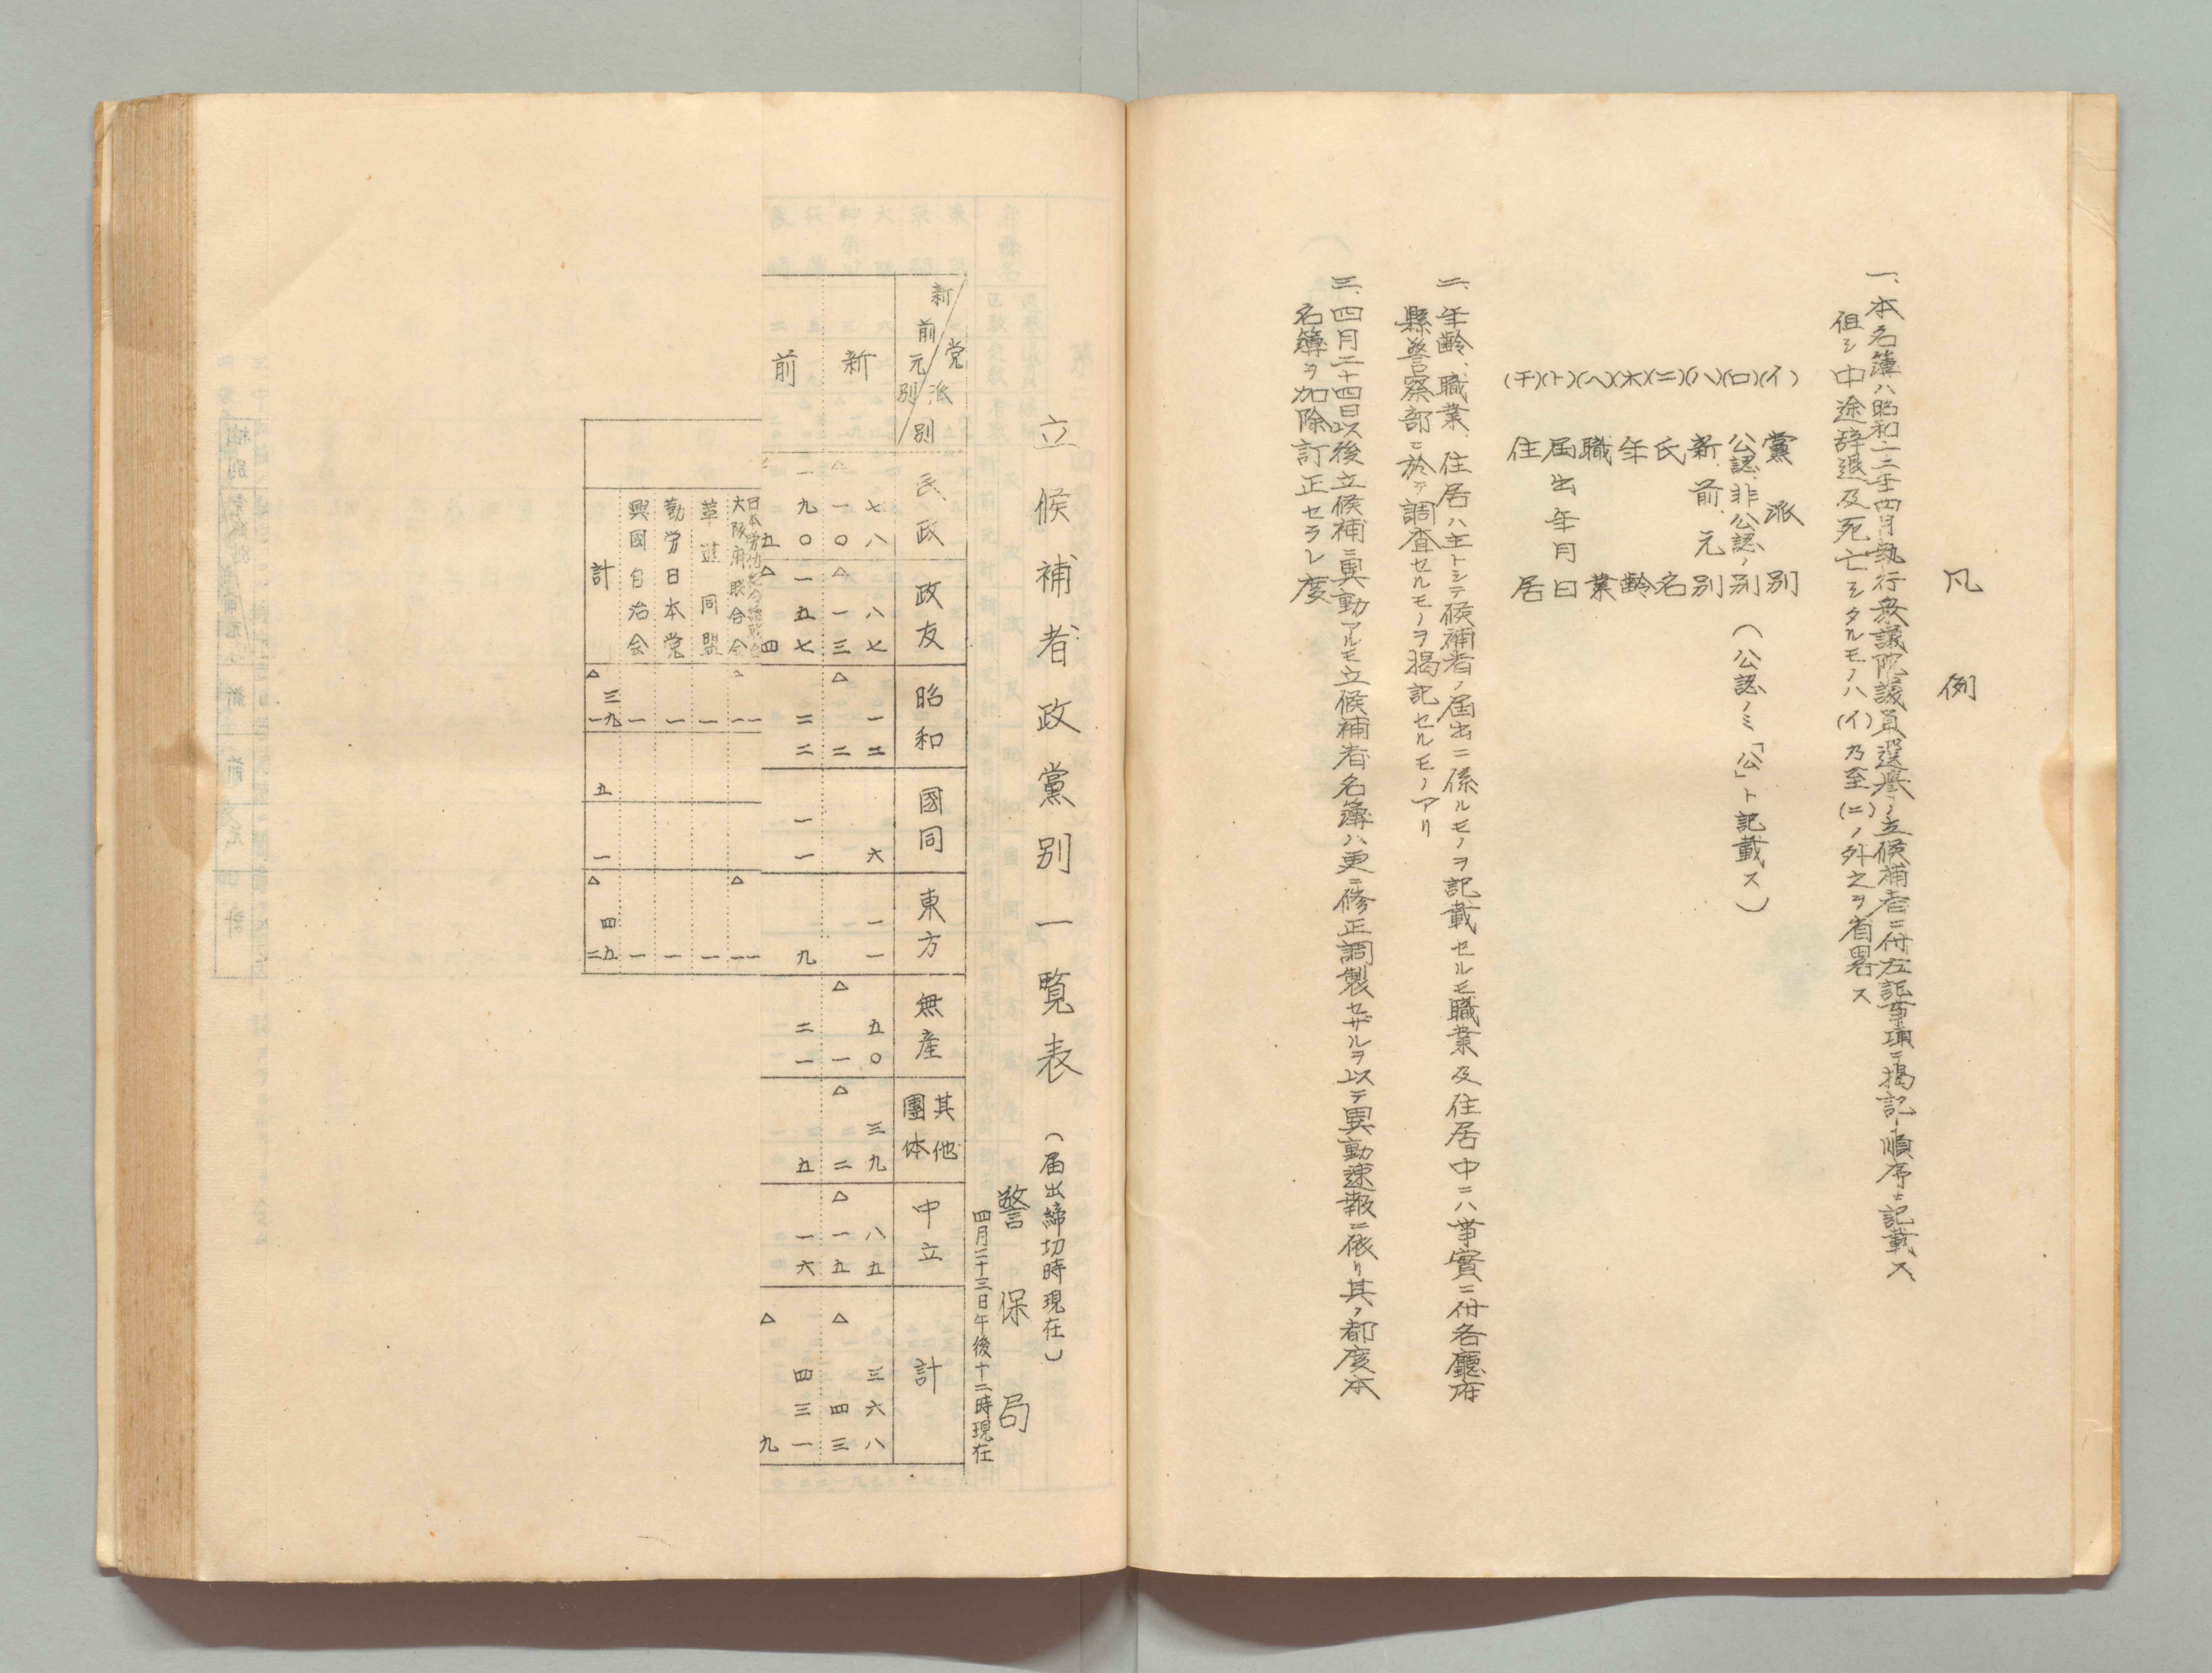 凡例
一、本名簿ハ昭和一二年四月執行衆議院議員選挙ノ立候補者ニ付左記事項ヲ掲記ノ順序ニ記載ス
但シ中途辞退及死亡シタルモノハ(イ)乃至(ニ)ノ外之ヲ省畧ス
(イ)黨派別
(ロ)公認、非公認ノ別(公認ノミ「公」ト記載ス)
(ハ)新、前、元別
(ニ)氏名
(ホ)年齢
(ヘ)職業
(ト)届出年月日
(チ)住居
二、年齢、職業、住居ハ主トシテ候補者ノ届出ニ係ルモノヲ記載セルモ職業及住居中ニハ事實ニ付各廳府
縣警察部ニ於テ調査セルモノヲ掲記セルモノアリ
三、四月二十四日以後立候補ニ異動アルモ立候補者名簿ハ更ニ修正調製セザルヲ以テ異動速報ニ依リ其ノ都度本
名簿ヲ加除訂正セラレ度
立候補者政黨別一覧表(届出締切時現在)
警保局
四月二十三日午後十二時現在
党派別 新前元別 民政 政友 昭和 國同 東方 無産 其他團体 中立 計
新 七八 八七 一二 六 一一 五〇 三九 八五 三六八
△一〇 △一三 △二 △一 △二 △一五 △四三
前 一九〇 一五七 二二 一一 九 二一 五 一六 四三一
五 △四 △九
日本労働組合総聯合大阪府联合会 △一一 △一一
革進同盟 一 一
勤労日本党 一 一
興國自治会 一 一
計 △三九一 五 一 △四五二